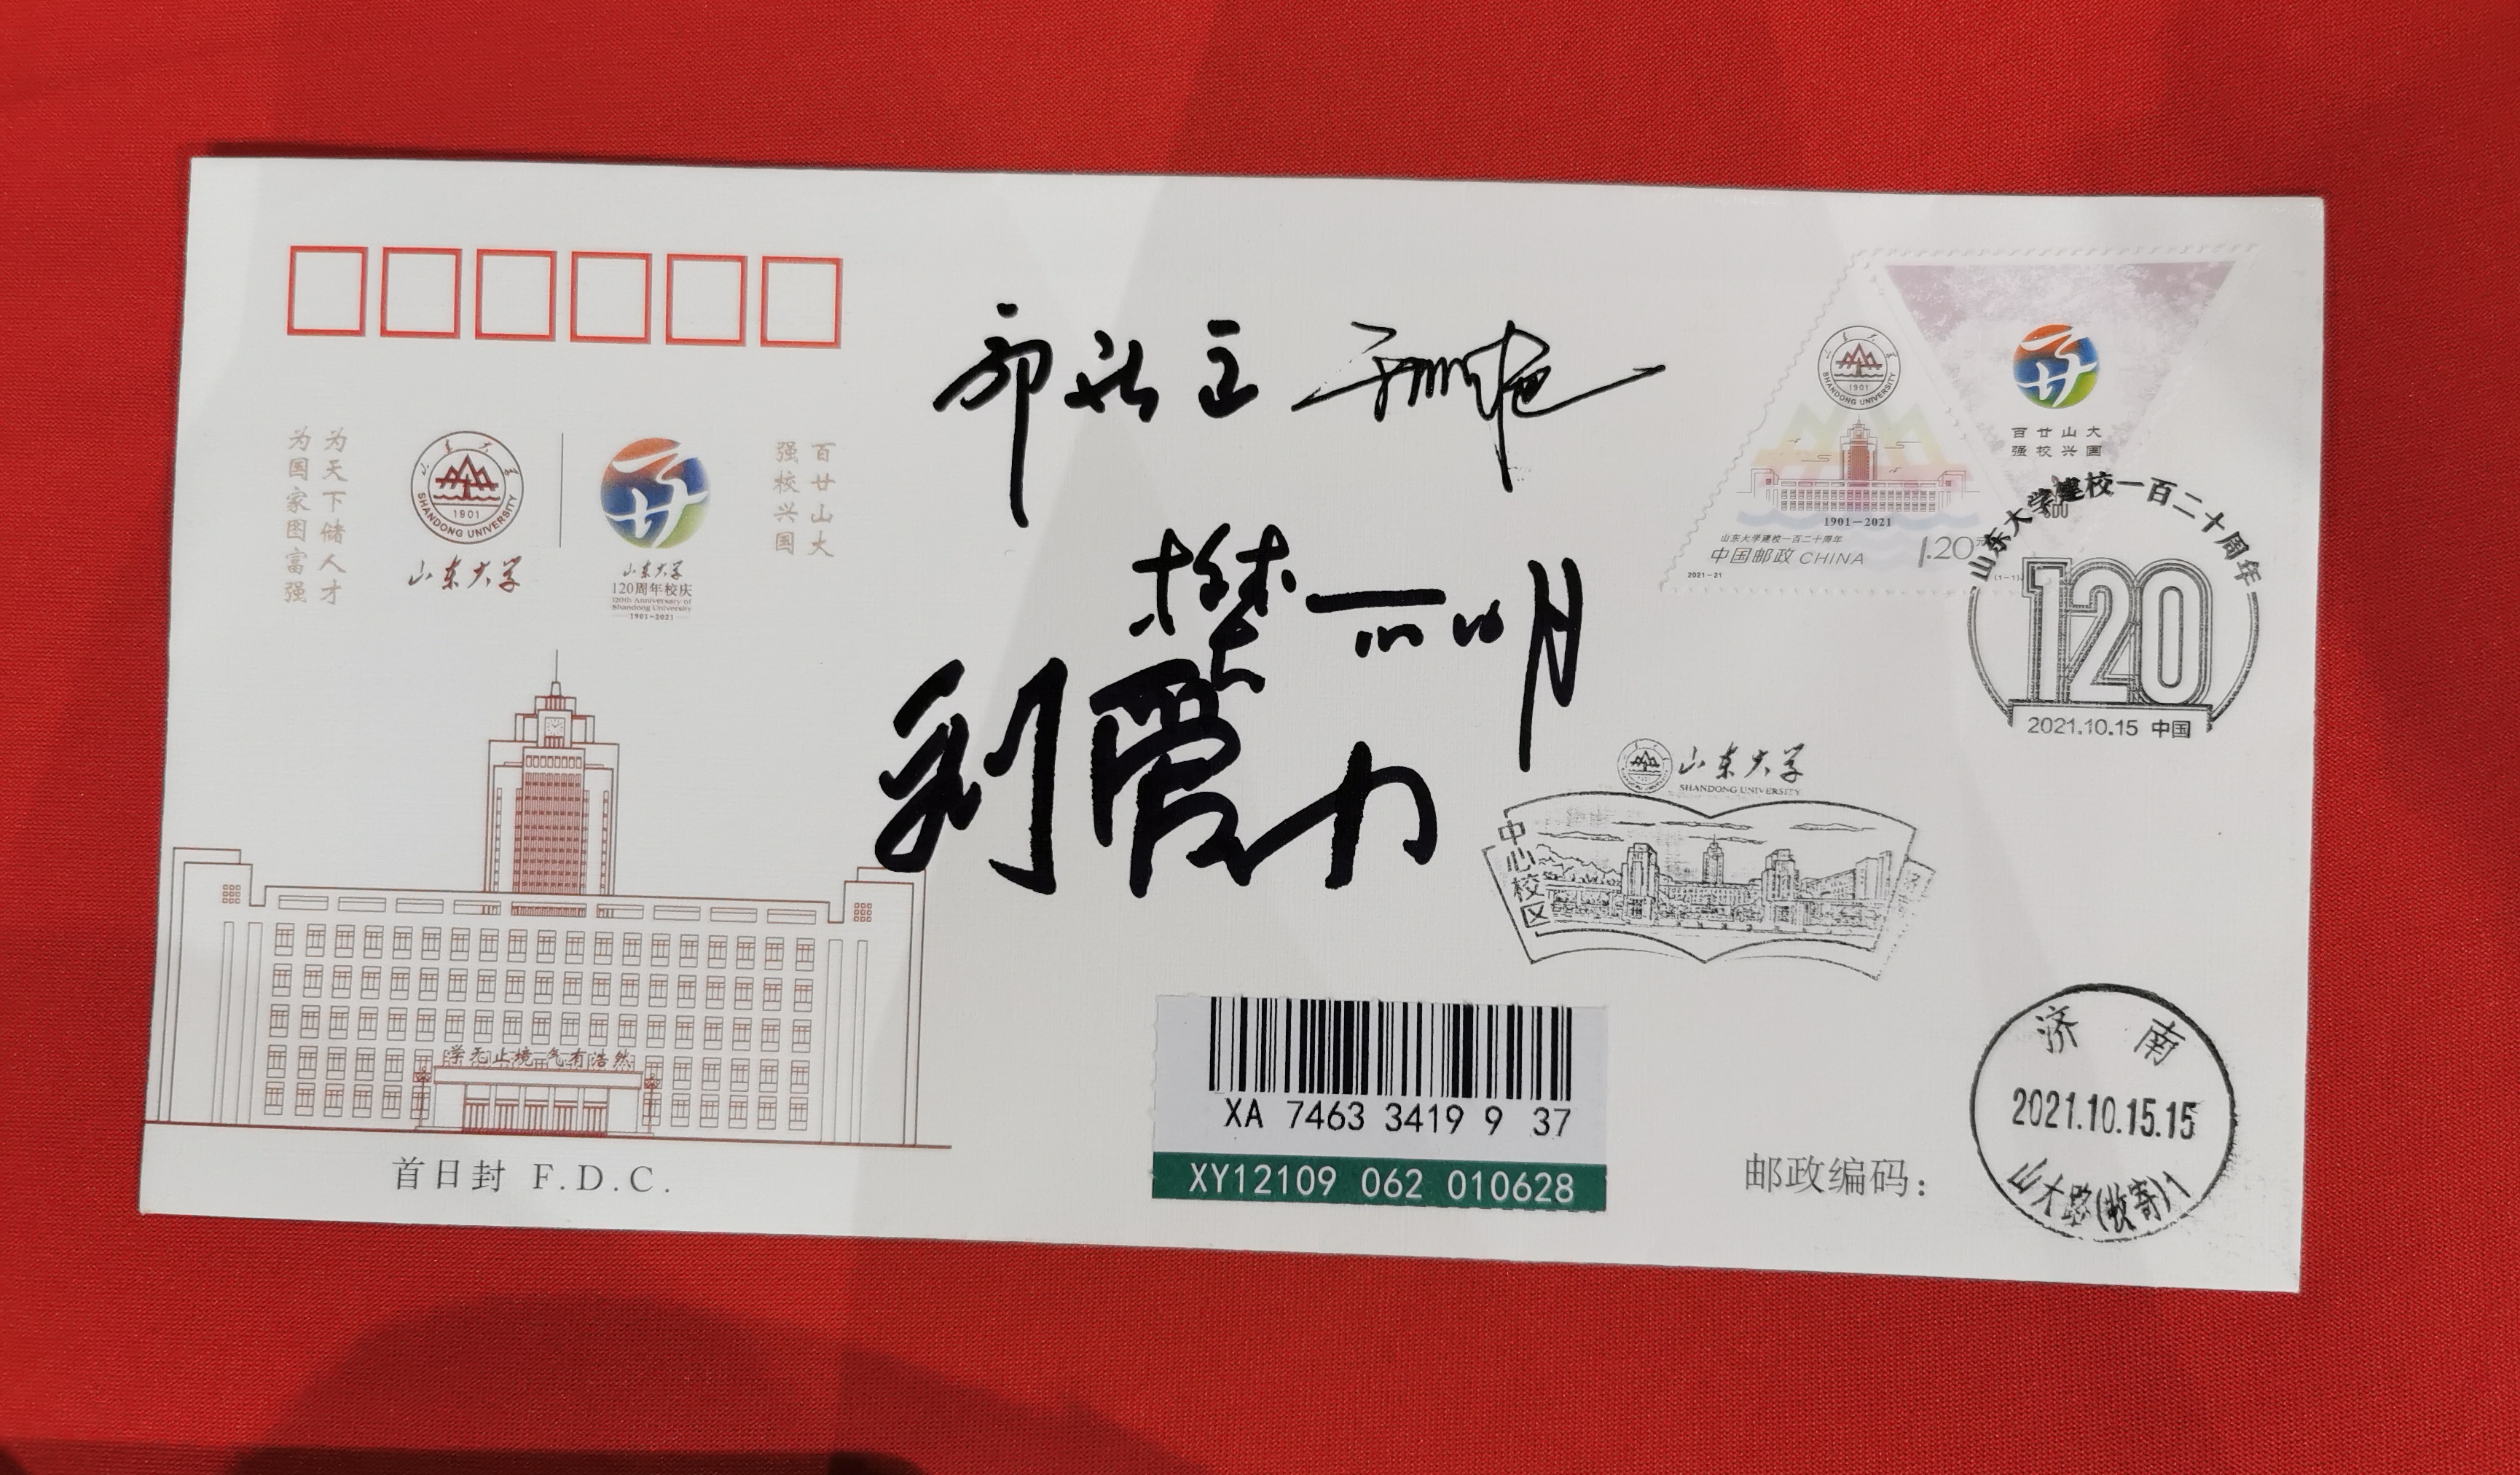 为天下储人才
为国家图富强
SHANDONG UNIVERSITY
1901
山东大学
山东大学
120周年校庆
120th Anniversary of
Shandong University
1901-2021
百廿山大
强校兴国
学无止境 气有浩然
首日封 F.D.C.
樊丽明
SHANDONG UNIVERSITY
1901
1901-2021
山东大学建校一百二十周年
中国邮政 CHINA
1.20元
2021-21
(1-1)
百廿山大
强校兴国
山东大学建校一百二十周年
120
2021.10.15 中国
山东大学
SHANDONG UNIVERSITY
中心校区
XA 7463 3419 9 37
XY12109 062 010628
邮政编码：
济南
2021.10.15.15
山大路(收寄)1